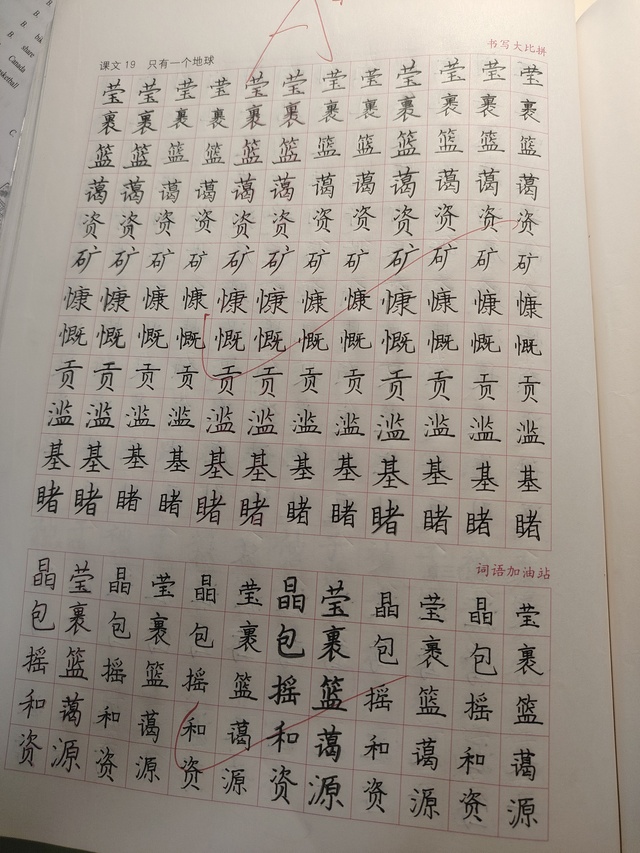 A+
书写大比拼
课文 19 只有一个地球
莹莹莹莹莹莹莹莹莹莹莹莹
裹裹裹裹裹裹裹裹裹裹裹裹
篮篮篮篮篮篮篮篮篮篮篮篮
蔼蔼蔼蔼蔼蔼蔼蔼蔼蔼蔼蔼
资资资资资资资资资资资资
矿矿矿矿矿矿矿矿矿矿矿矿
慷慷慷慷慷慷慷慷慷慷慷慷
慨慨慨慨慨慨慨慨慨慨慨慨
贡贡贡贡贡贡贡贡贡贡贡贡
滥滥滥滥滥滥滥滥滥滥滥滥
基基基基基基基基基基基基
睹睹睹睹睹睹睹睹睹睹睹睹
词语加油站
晶莹晶莹晶莹晶莹晶莹晶莹
包裹包裹包裹包裹包裹包裹
摇篮摇篮摇篮摇篮摇篮摇篮
和蔼和蔼和蔼和蔼和蔼和蔼
资源资源资源资源资源资源
share
Canada